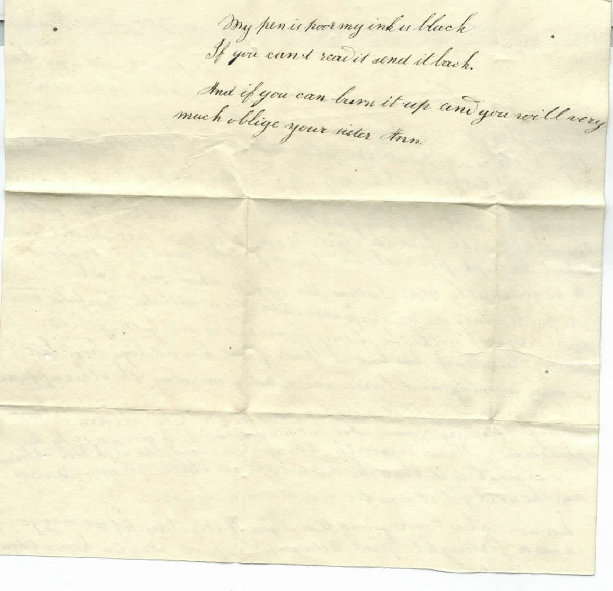 My pen is poor my ink is black
If you can't read it send it back.
And if you can burn it up and you will very
much oblige your sister Ann.